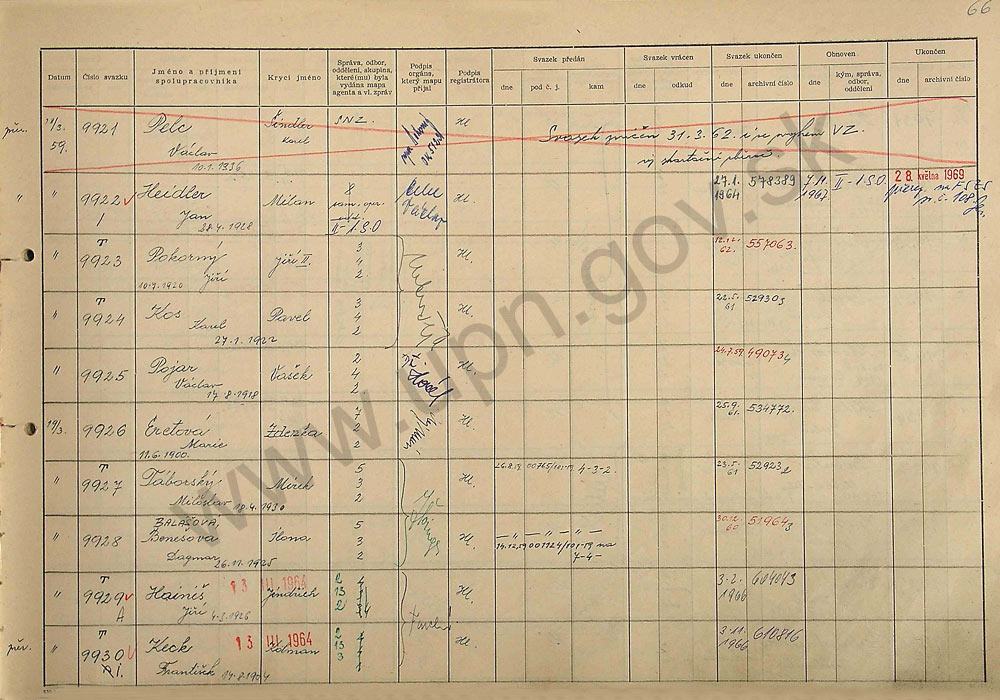 66
Datum
Číslo svazku
Jméno a příjmení spolupracovníka
Krycí jméno
Správa, odbor, oddělení, skupina, které(mu) byla vydána mapa agenta a vl. zpráv
Podpis orgánu, který mapu přijal
Podpis registrátora
Svazek předán
dne
pod č. j.
kam
Svazek vrácen
dne
odkud
Svazek ukončen
dne
archivní číslo
Obnoven
dne
kým, správa, odbor, oddělení
Ukončen
dne
archivní číslo
59.
9921
Pelc
Václav
10.1.1936
Šindler
Karel
SNZ.
Hl.
31.3.62
VZ.
"
9922
1
Heidler
Jan
28.4.1928
Milan
8
II-1.SO
Václav
Hl.
27.1.
1964
578389
7.11.
1967
II-1 SO
28. května 1969
"
T
9923
Pokorný
Jiří
10.9.1920
Jiří II.
3
4
2
Hl.
12.12.
62.
557063.
"
T
9924
Kos
Karel
27.1.1922
Pavel
3
4
2
Hl.
22.5.
61
529303
"
9925
Pojar
Václav
17.8.1918
Vašek
2
4
2
Hl.
24.7.59
490734
19/3.
9926
Eretová
Marie
11.6.1900.
Zdeňka
7
2
2
Hl.
25.9.
61.
534772.
"
T
9927
Táborský
Miloslav 18.4.1930
Mirek
5
3
2
Hl.
26.8.59
00765/101-59
4-3-2.
23.5.
61
529232
"
9928
BALAŠOVA,
Benešova
Dagmar
26.11.1925
Ilona
5
3
2
Hl.
— " — — " — — " —
14.12.59 001124/101-59 na
7-4-
30.12.
60
519643
"
T
9929
A
Hainiš
Jiří 4.3.1926
13 III. 1964
Jindřich
2
13
2
Hl.
3.2.
1966
604043
přev.
"
T
9930
Keck
František 14.8.1904
13 III. 1964
Kolman
2
13
3
Hl.
3.11.
1966
610816
www.upn.gov.sk